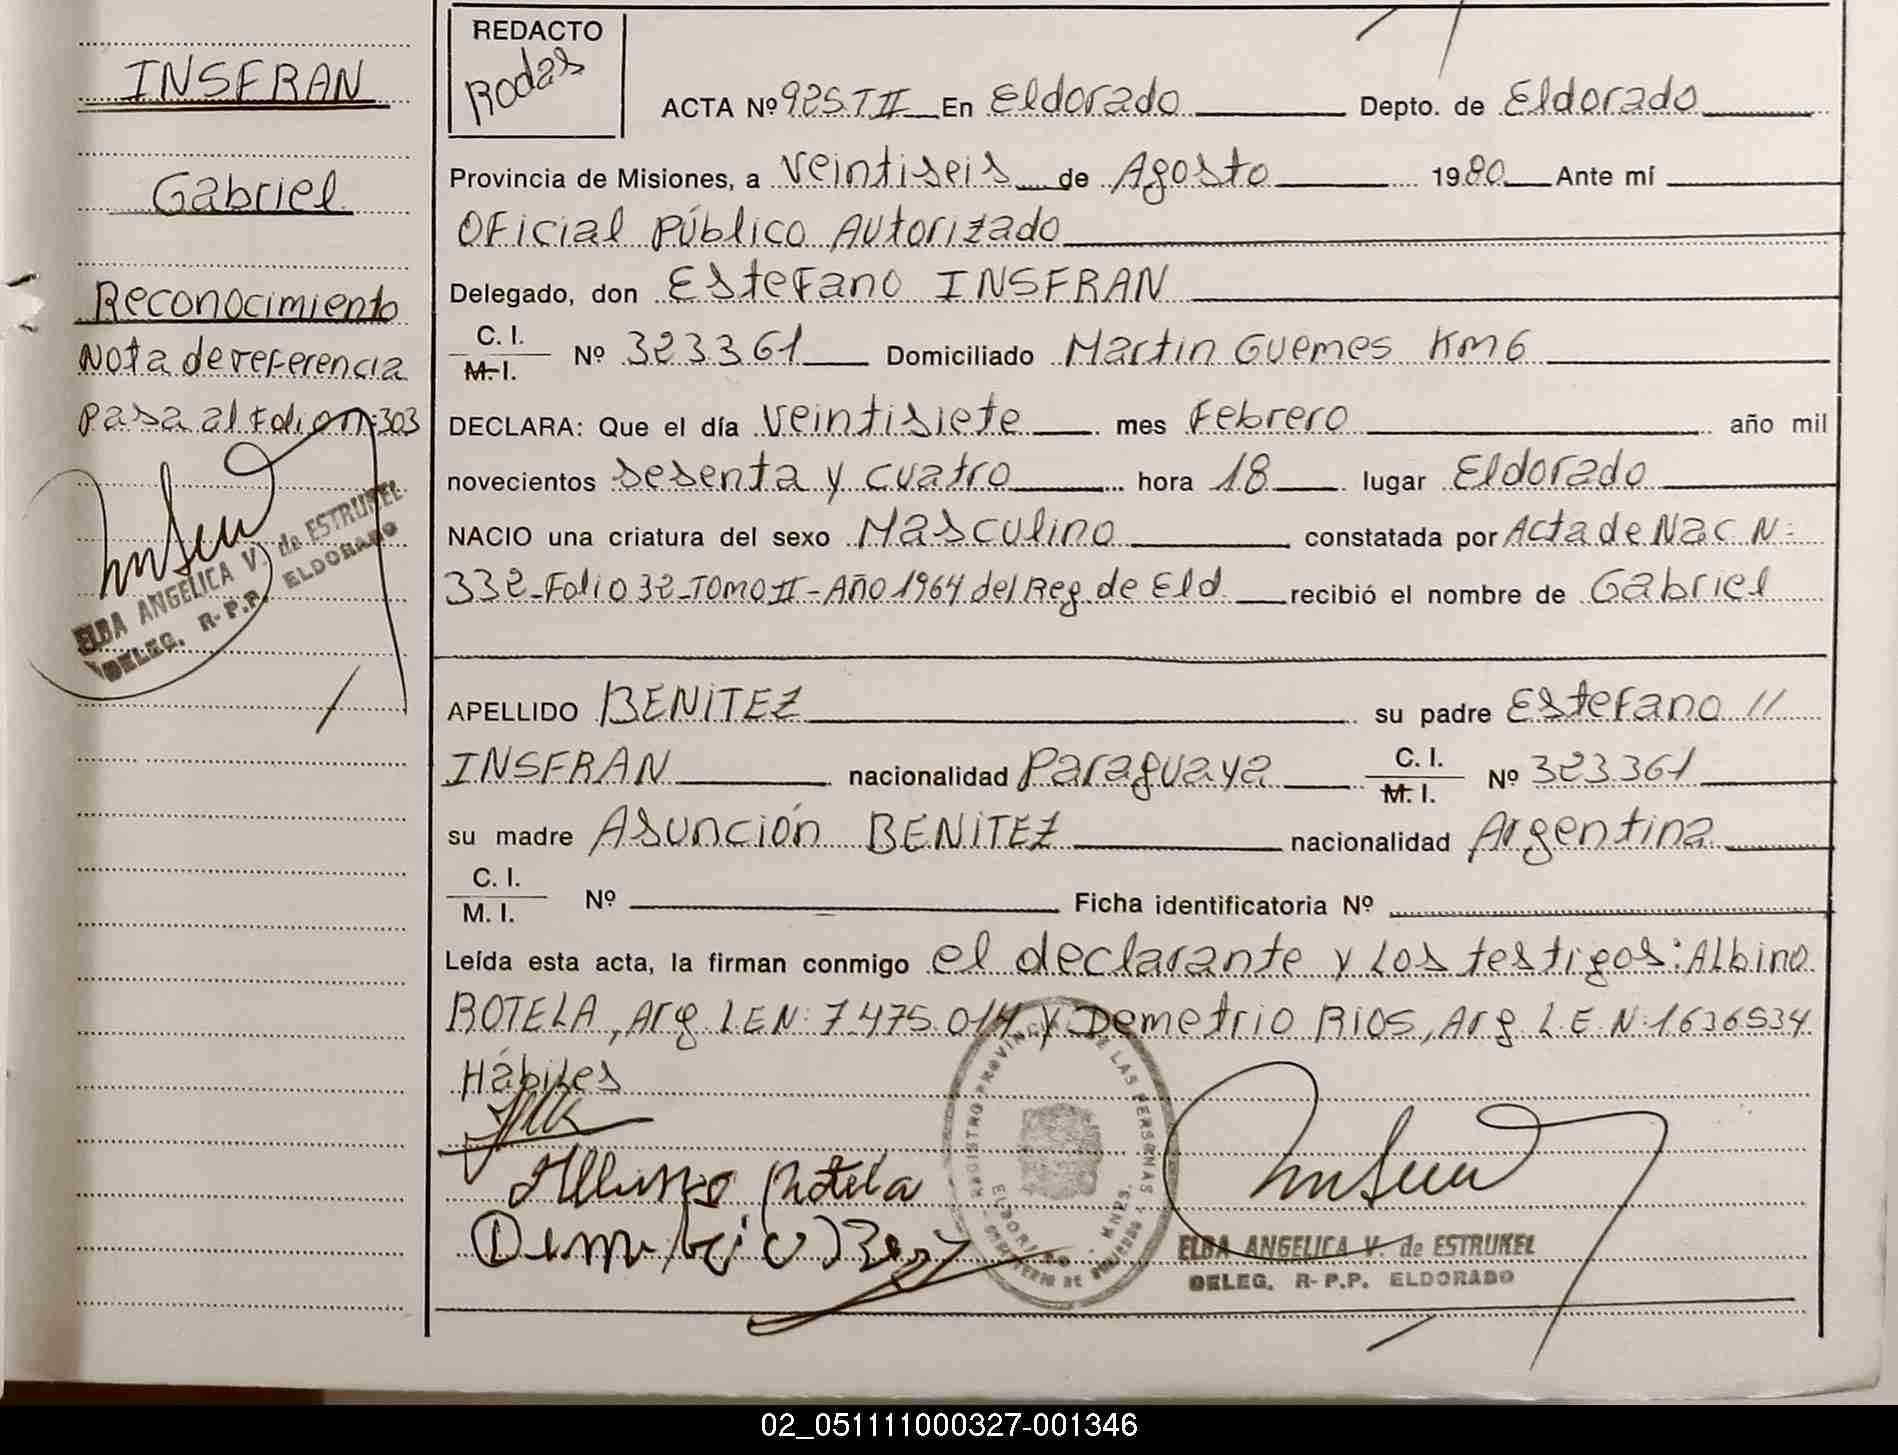 INSFRAN
Gabriel
Reconocimiento
Nota de referencia
pasa al Folio n: 303
ELBA ANGELICA V. de ESTRUKEL
DELEG. R-P.P. ELDORADO
REDACTO
Rodas
ACTA Nº 925 T II En Eldorado Depto. de Eldorado
Provincia de Misiones, a veintiseis de Agosto 1980 Ante mí
Oficial Público Autorizado
Delegado, don Estefano INSFRAN
C. I.
M. I. Nº 323.361 Domiciliado Martin Guemes Km 6
DECLARA: Que el día veintisiete mes Febrero año mil
novecientos sesenta y cuatro hora 18 lugar Eldorado
NACIO una criatura del sexo Masculino constatada por Acta de Nac N:
332-Folio 32-Tomo II-Año 1964 del Reg. de Eld. recibió el nombre de Gabriel
APELLIDO BENITEZ su padre Estefano //
INSFRAN nacionalidad Paraguaya C. I.
M. I. Nº 323.361
su madre Asunción BENITEZ nacionalidad Argentina
C. I.
M. I. Nº Ficha identificatoria Nº
Leída esta acta, la firman conmigo el declarante y Los testigos: Albino
ROTELA, Arg L E N: 7.475.014 y Demetrio RIOS, Arg L.E.N. 1636534
Hábiles
Rotela
REGISTRO PROVINCIAL DE LAS PERSONAS
ELDORADO - MNES.
ELBA ANGELICA V. de ESTRUKEL
DELEG. R-P.P. ELDORADO
02_051111000327-001346